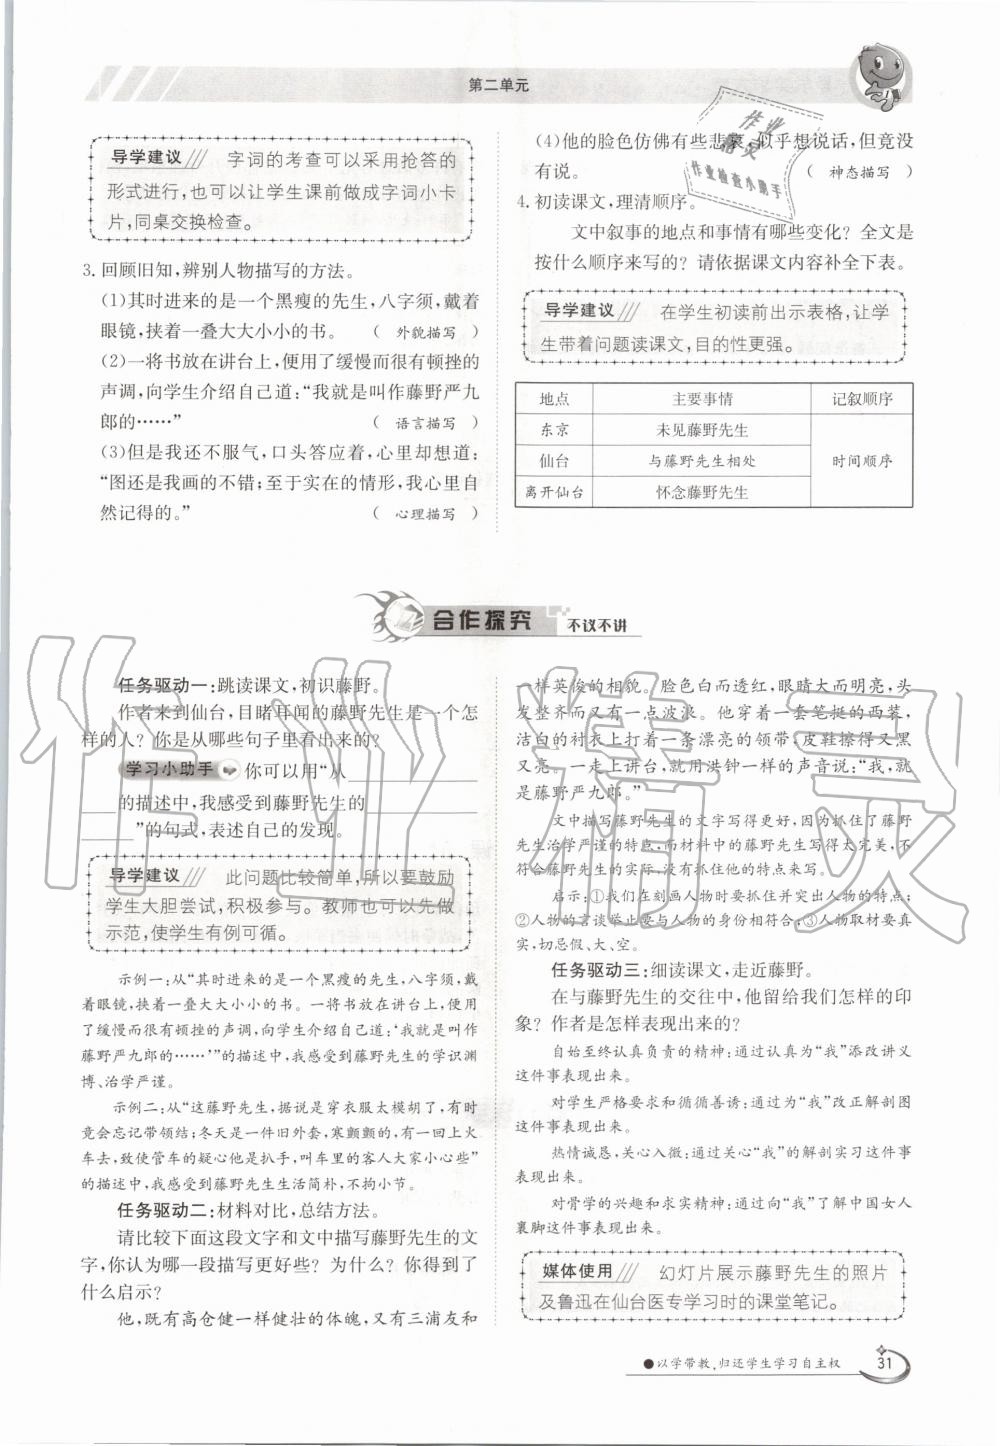 第二单元
导学建议 字词的考查可以采用抢答的
形式进行,也可以让学生课前做成字词小卡
片,同桌交换检查。
3. 回顾旧知,辨别人物描写的方法。
(1)其时进来的是一个黑瘦的先生,八字须,戴着
眼镜,挟着一叠大大小小的书。 ( 外貌描写 )
(2)一将书放在讲台上,便用了缓慢而很有顿挫的
声调,向学生介绍自己道:“我就是叫作藤野严九
郎的……” ( 语言描写 )
(3)但是我还不服气,口头答应着,心里却想道:
“图还是我画的不错;至于实在的情形,我心里自
然记得的。” ( 心理描写 )
(4)他的脸色仿佛有些悲哀,似乎想说话,但竟没
有说。 ( 神态描写 )
4. 初读课文,理清顺序。
文中叙事的地点和事情有哪些变化? 全文是
按什么顺序来写的? 请依据课文内容补全下表。
导学建议 在学生初读前出示表格,让学
生带着问题读课文,目的性更强。
地点 主要事情 记叙顺序
东京 未见藤野先生
仙台 与藤野先生相处 时间顺序
离开仙台 怀念藤野先生
作业
精灵
作业检查小助手
合作探究 不议不讲
任务驱动一:跳读课文,初识藤野。
作者来到仙台,目睹耳闻的藤野先生是一个怎
样的人? 你是从哪些句子里看出来的?
学习小助手 你可以用“从
的描述中,我感受到藤野先生的
”的句式,表述自己的发现。
导学建议 此问题比较简单,所以要鼓励
学生大胆尝试,积极参与。教师也可以先做
示范,使学生有例可循。
示例一:从“其时进来的是一个黑瘦的先生,八字须,戴
着眼镜,挟着一叠大大小小的书。一将书放在讲台上,便用
了缓慢而很有顿挫的声调,向学生介绍自己道:‘我就是叫作
藤野严九郎的……’”的描述中,我感受到藤野先生的学识渊
博、治学严谨。
示例二:从“这藤野先生,据说是穿衣服太模胡了,有时
竟会忘记带领结;冬天是一件旧外套,寒颤颤的,有一回上火
车去,致使管车的疑心他是扒手,叫车里的客人大家小心些”
的描述中,我感受到藤野先生生活简朴,不拘小节。
任务驱动二:材料对比,总结方法。
请比较下面这段文字和文中描写藤野先生的文
字,你认为哪一段描写更好些? 为什么? 你得到了
什么启示?
他,既有高仓健一样健壮的体魄,又有三浦友和
一样英俊的相貌。脸色白而透红,眼睛大而明亮,头
发整齐而又有一点波浪。他穿着一套笔挺的西装,
洁白的衬衣上打着一条漂亮的领带,皮鞋擦得又黑
又亮。一走上讲台,就用洪钟一样的声音说:“我,就
是藤野严九郎。”
文中描写藤野先生的文字写得更好,因为抓住了藤野
先生治学严谨的特点,而材料中的描写藤野先生太完美,不
符合藤野先生的实际,没有抓住他的特点来写。
启示:①我们在刻画人物时要抓住并突出人物的特点;
②人物的言谈举止要与人物的身份相符合;③人物取材要真
实,切忌假、大、空。
任务驱动三:细读课文,走近藤野。
在与藤野先生的交往中,他留给我们怎样的印
象? 作者是怎样表现出来的?
自始至终认真负责的精神:通过认真为“我”添改讲义
这件事表现出来。
对学生严格要求和循循善诱:通过为“我”改正解剖图
这件事表现出来。
热情诚恳,关心入微:通过关心“我”的解剖实习这件事
表现出来。
对骨学的兴趣和求实精神:通过向“我”了解中国女人
裹脚这件事表现出来。
媒体使用 幻灯片展示藤野先生的照片
及鲁迅在仙台医专学习时的课堂笔记。
作业精灵
●以学带教,归还学生学习自主权 31